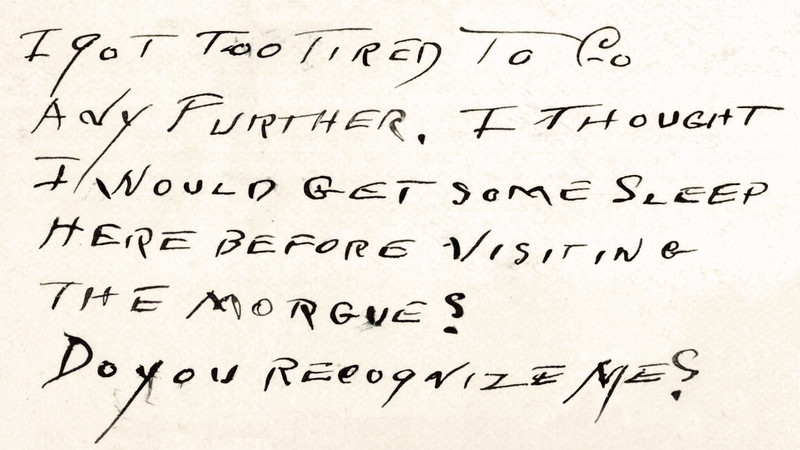 I GOT TOO TIRED TO GO
ANY FURTHER. I THOUGHT
I WOULD GET SOME SLEEP
HERE BEFORE VISITING
THE MORGUE?
DO YOU RECOGNIZE ME?